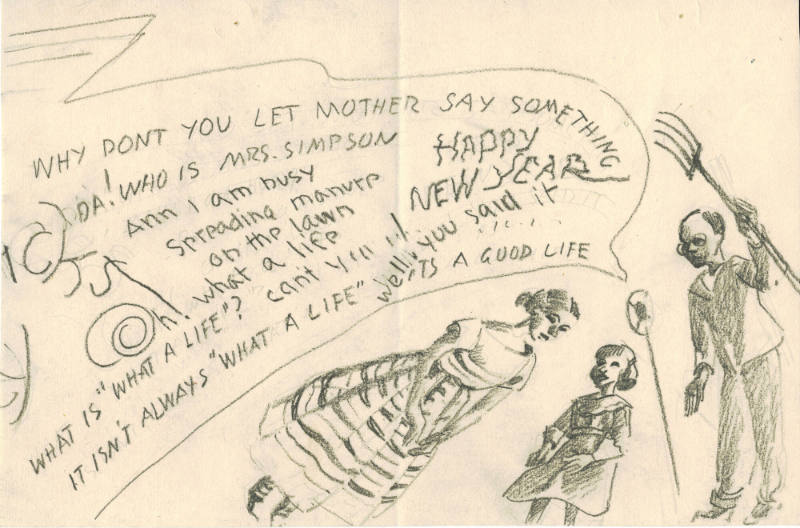 WHY DONT YOU LET MOTHER SAY SOMETHING
DA! WHO IS MRS. SIMPSON
HAPPY
NEW YEAR
Ann I am busy
spreading manure
on the lawn
Oh! what a life
well, you said it
WHAT IS "WHAT A LIFE"? can't you
IT ISN'T ALWAYS "WHAT A LIFE" ITS A GOOD LIFE